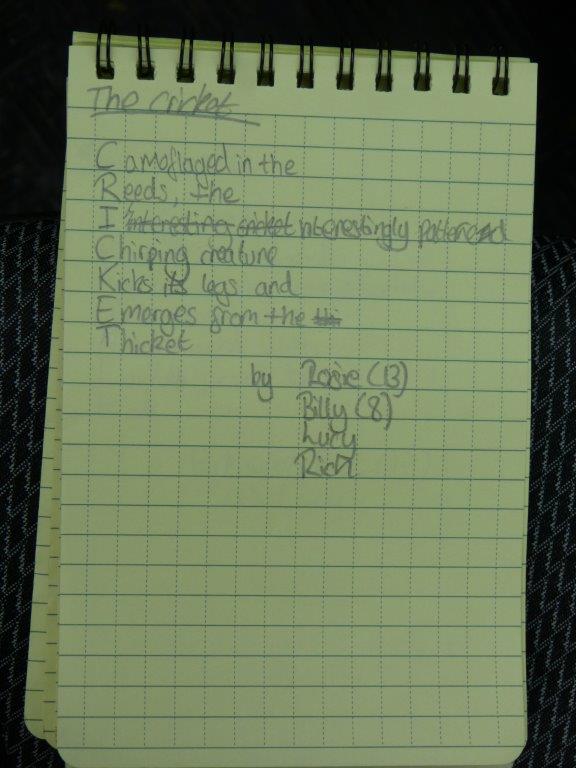 The Cricket
Camoflaged in the
Reeds, the
I interesting cricket nterestingly patterend
Chirping creature
Kicks its legs and
Emerges from the
Thicket
by Rosie (13)
Billy (8)
Lucy
Rich